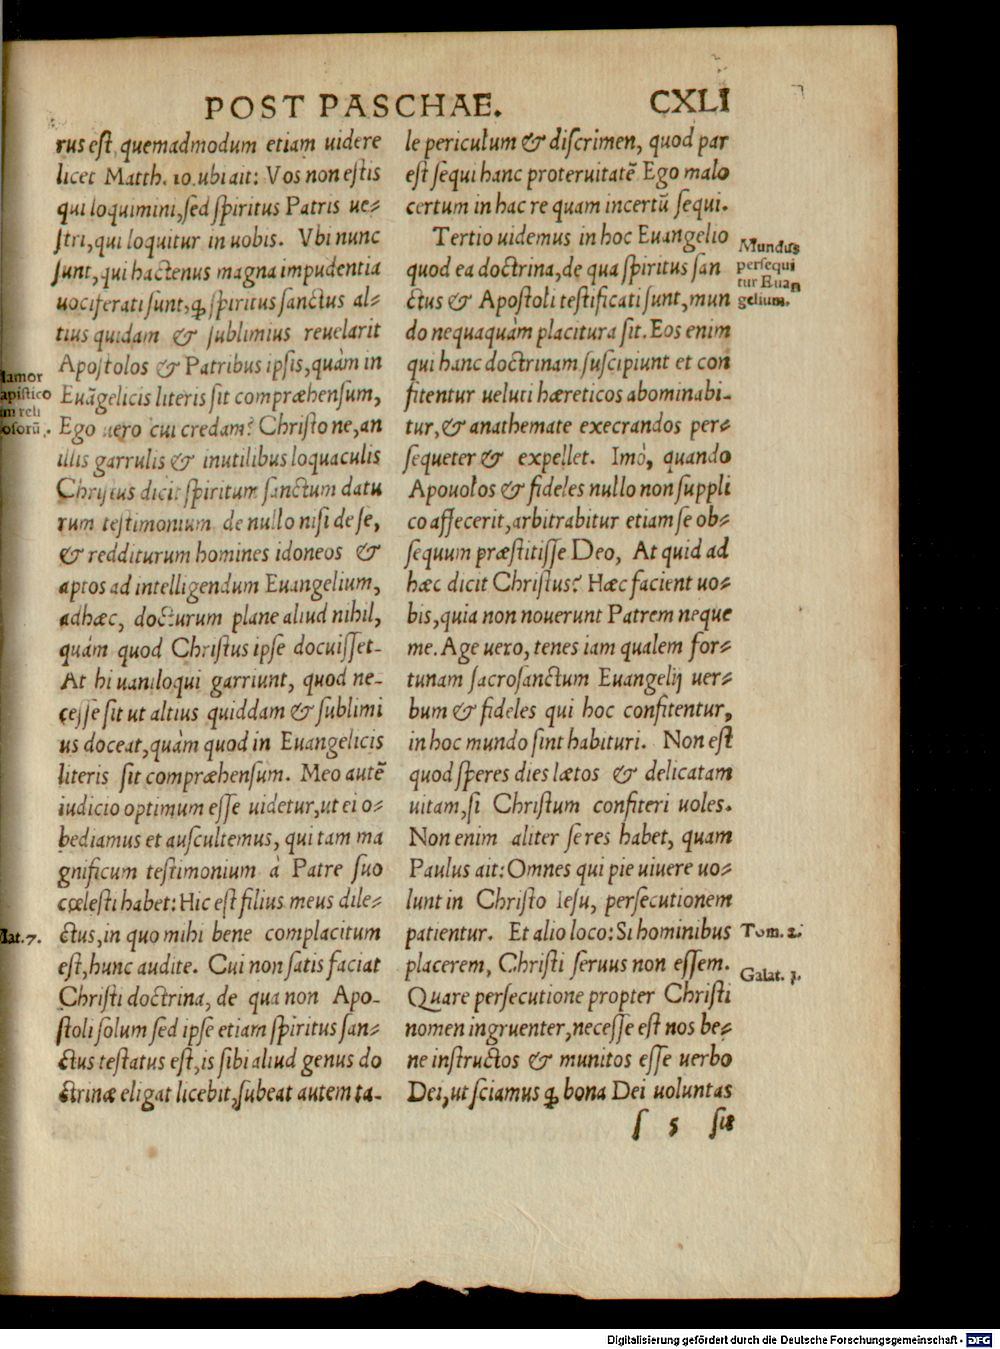 POST PASCHAE. CXLI
rus est, quemadmodum etiam uidere
licet Matth. 10. ubi ait: Vos non estis
qui loquimini, sed spiritus Patris ue⸗
stri, qui loquitur in uobis. Vbi nunc
sunt, qui hactenus magna impudentia
uociferati sunt, ꝙ spiritus sanctus al⸗
tius quidam & sublimius reuelarit
Apostolos & Patribus ipsis, quàm in
Euãgelicis literis sit compræhensum,
Ego uero cui credam? Christo ne, an
illis garrulis & inutilibus loquaculis
Christus dicit spiritum sanctum datu
rum testimonium de nullo nisi de se,
& redditurum homines idoneos &
aptos ad intelligendum Euangelium,
adhæc, docturum plane aliud nihil,
quám quod Christus ipse docuisset.
At hi uaniloqui garriunt, quod ne-
cesse sit ut altius quiddam & sublimi
us doceat, quàm quod in Euangelicis
literis sit compræhensum. Meo autẽ
iudicio optimum esse uidetur, ut ei o⸗
bediamus et auscultemus, qui tam ma
gnificum testimonium à Patre suo
cœlesti habet: Hic est filius meus dile⸗
ctus, in quo mihi bene complacitum
est, hunc audite. Cui non satis faciat
Christi doctrina, de qua non Apo-
stoli solum sed ipse etiam spiritus san⸗
ctus testatus est, is sibi aliud genus do
ctrinæ eligat licebit, subeat autem ta-
lamor
apistico
im reli
osorũ.
Mat. 7.
le periculum & discrimen, quod par
est sequi hanc proteruitatẽ Ego malo
certum in hac re quam incertũ sequi.
Tertio uidemus in hoc Euangelio
quod ea doctrina, de qua spiritus san
ctus & Apostoli testificati sunt, mun
do nequaquàm placitura sit. Eos enim
qui hanc doctrinam suscipiunt et con
fitentur ueluti hæreticos abominabi-
tur, & anathemate execrandos per⸗
sequeter & expellet. Imò, quando
Apouolos & fideles nullo non suppli
co affecerit, arbitrabitur etiam se ob⸗
sequum præstitisse Deo, At quid ad
hæc dicit Christus? Hæc facient uo⸗
bis, quia non nouerunt Patrem neque
me. Age uero, tenes iam qualem for⸗
tunam sacrosanctum Euangelij uer⸗
bum & fideles qui hoc confitentur,
in hoc mundo sint habituri. Non est
quod speres dies lætos & delicatam
uitam, si Christum confiteri uoles.
Non enim aliter se res habet, quam
Paulus ait: Omnes qui pie uiuere uo⸗
lunt in Christo Iesu, persecutionem
patientur. Et alio loco: Si hominibus
placerem, Christi seruus non essem.
Quare persecutione propter Christi
nomen ingruenter, necesse est nos be⸗
ne instructos & munitos esse uerbo
Dei, ut sciamus ꝙ bona Dei uoluntas
s 5 sit
Mundus
persequi
tur Euan
gelium.
Tom. 2.
Galat. 1.
Digitalisierung gefördert durch die Deutsche Forschungsgemeinschaft - DFG